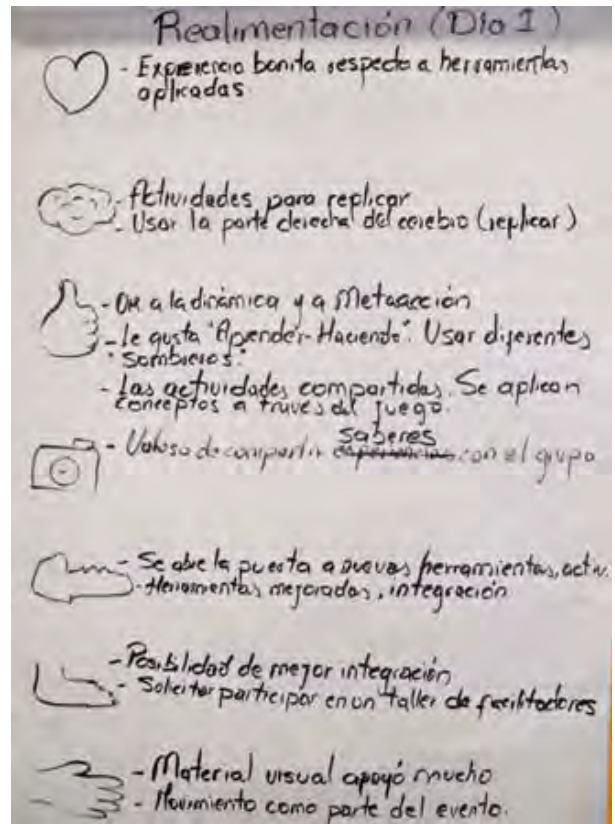 Realimentación (Día 1)
- Experiencia bonita respecto a herramientas
aplicadas
- Actividades para replicar
- Usar la parte derecha del cerebro (replicar)
- OK a la dinámica y a Metaacción
- le gusta "Aprender-Haciendo". Usar diferentes
"sombreros".
- Las actividades compartidas. Se aplican
conceptos a través del juego.
saberes
- Valioso de compartir experiencias con el grupo
- Se abre la puerta a nuevas herramientas, activ.
- Herramientas mejoradas, integración
- Posibilidad de mejor integración
- Solicitar participar en un taller de facilitadores
- Material visual apoyó mucho
- Movimiento como parte del evento.